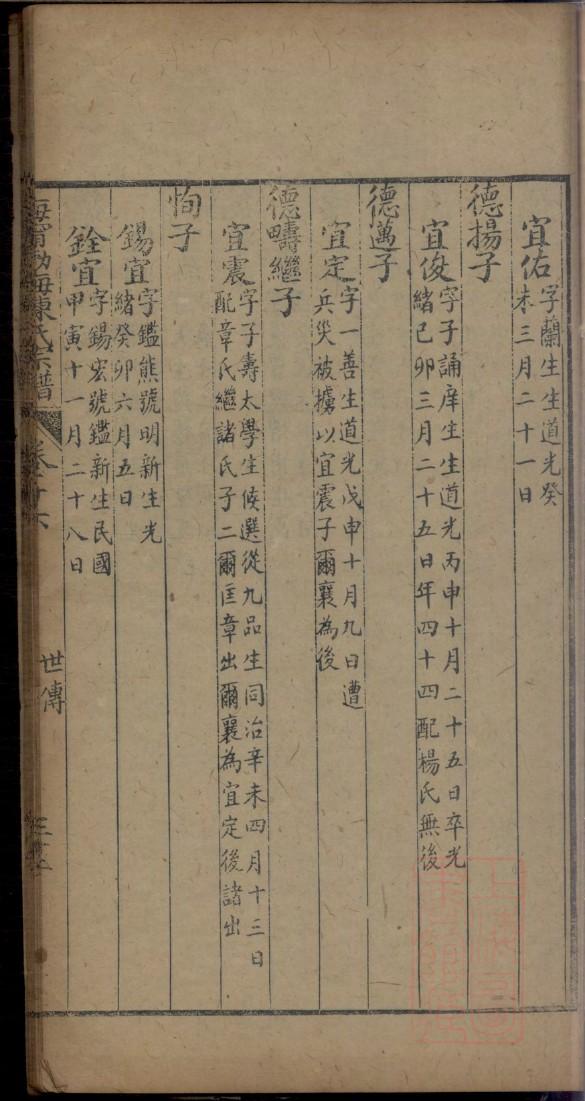 宜佑
字蘭生生道光癸
未三月二十一日
德揚子
宜俊
字子誦庠生生道光丙申十月二十五日卒光
緒己卯三月二十五日年四十四配楊氏無後
德邁子
宜定
字一善生道光戊申十月九日遭
兵災被擄以宜震子爾襄為後
德疇繼子
宜震
字子壽太學生候選從九品生同治辛未四月十三日
配章氏繼諸氏子二爾匡章出爾襄為宜定後諸出
恂子
錫宜
字鑑熊號明新生光
緒癸卯六月五日
銓宜
字錫宏號鑑新生民國
甲寅十一月二十八日
海甯渤海陳氏宗譜
世傳